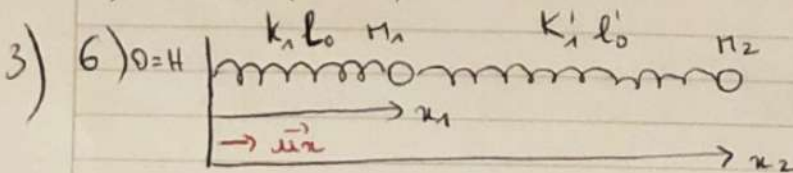 3) 6) O=H K₁ l₀ M₁ K₁' l₀' M₂
x₁
→ u⃗x
x₂